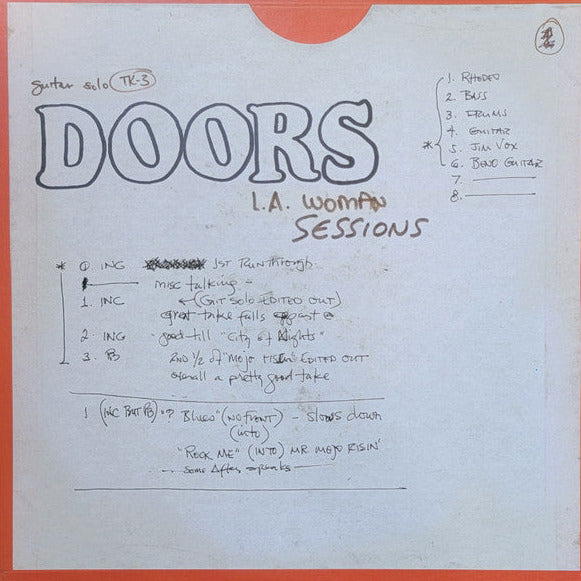 guitar solo TK-3
DOORS
L.A. WOMAN
SESSIONS
1. RHODEO
2. BASS
3. DRUMS
4. GUITAR
* 5. JIM VOX
6. BEND GUITAR
7.
8.
* 0 ING 1ST RUNTHROUGH
misc talking -
1. INC ←(GIT SOLO EDITED OUT)
great take falls apart @
2 ING -good till "City of Nights"
3. PB 2ND 1/2 of "MOJO RISIN" EDITED OUT
overall a pretty good take
1 (INC BUT PB) "? Blues" (NO FRONT) - Slows down
(into)
"ROCK ME" (INTO) MR MOJO RISIN'
— Some After speaks —